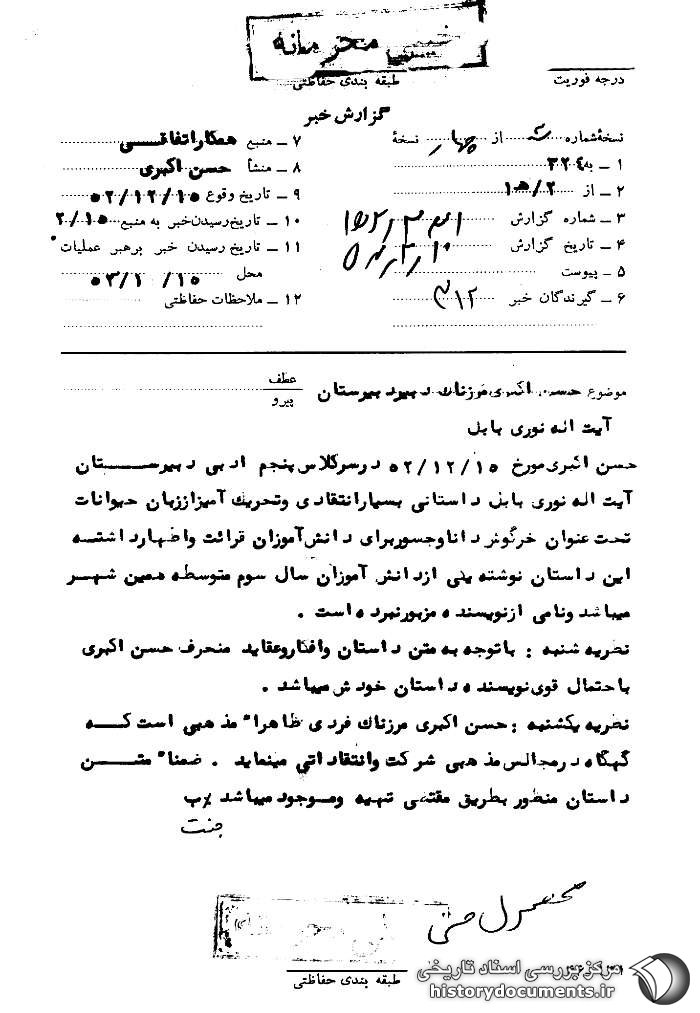 محرمانه
طبقه بندی حفاظتی
درجه فوریت
گزارش خبر
نسخهٔ شماره از چهار نسخهٔ
۱ ـ به ۳۲۴
۲ ـ از ۲/ﻫ۱
۳ ـ شماره گزارش
۴ ـ تاریخ گزارش
۵ ـ پیوست
۶ ـ گیرندگان خبر ۳۱۲
۷ ـ منبع همکار اتفاقی
۸ ـ منشأ حسن اکبری
۹ ـ تاریخ وقوع ۵۲/۱۲/۱۵
۱۰ ـ تاریخ رسیدن خبر به منبع ۲/۱۵
۱۱ ـ تاریخ رسیدن خبر برهبر عملیات
محل ۵۳/۱ /۱۵
۱۲ ـ ملاحظات حفاظتی
موضوع حسن اکبری مرزناك دبیر دبیرستان
عطف
پیرو
آیت اله نوری بابل
حسن اکبری مورخ ۵۲/۱۲/۱۵ درسرکلاس پنجم ادبی دبیرستان
آیت اله نوری بابل داستانی بسیارانتقادی وتحریك آمیزاززبان حیوانات
تحت عنوان خرگوش داناوجسوربرای دانش آموزان قرائت واظهارداشته
این داستان نوشته یکی ازدانش آموزان سال سوم متوسطه همین شهر
میباشد ونامی ازنویسنده مزبورنبرده است .
نظریه شنبه : باتوجه به متن داستان وافکاروعقاید منحرف حسن اکبری
باحتمال قوی نویسنده داستان خودش میباشد .
نظریه یکشنبه : حسن اکبری مرزناك فردی ظاهراً مذهبی است که
گهگاه درمجالس مذهبی شرکت وانتقاداتی مینماید . ضمناً متن
داستان منظور بطریق مقتضی تهیه وموجود میباشد
طبقه بندی حفاظتی
مرکز بررسی اسناد تاریخی
historydocuments.ir